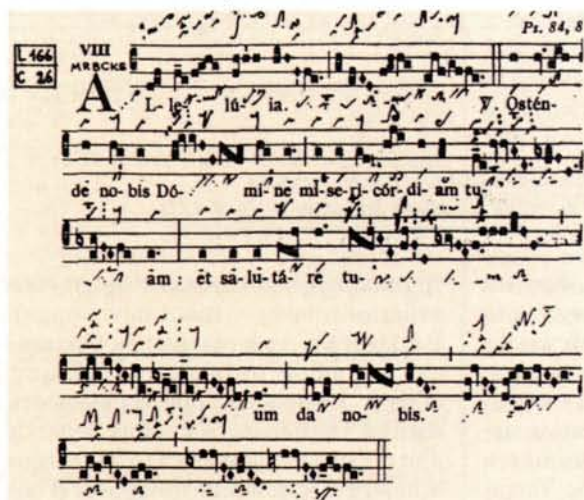 Ps. 84, 8
L 166
C 26
VIII
MRBCKS
AL- le- lú- ia. ℣. Ostén-
de no- bis Dó- mi- ne mi- se- ri- cór- di- am tu-
am : et sa- lu- tá- re tu-
um da no- bis.